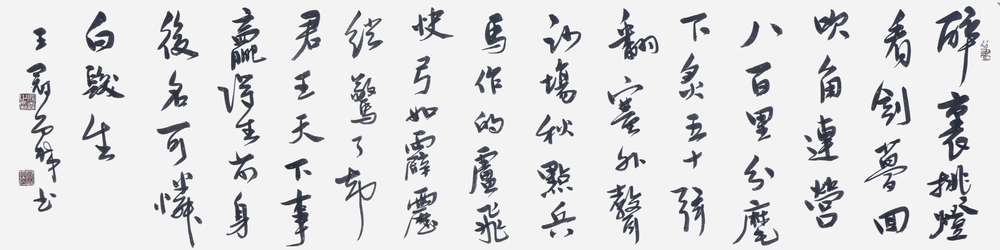 醉裏挑燈
看劍夢回
吹角連營
八百里分麾
下炙五十弦
翻塞外聲
沙場秋點兵
馬作的盧飛
快弓如霹靂
絃驚了却
君王天下事
贏得生前身
後名可憐
白髮生
王書